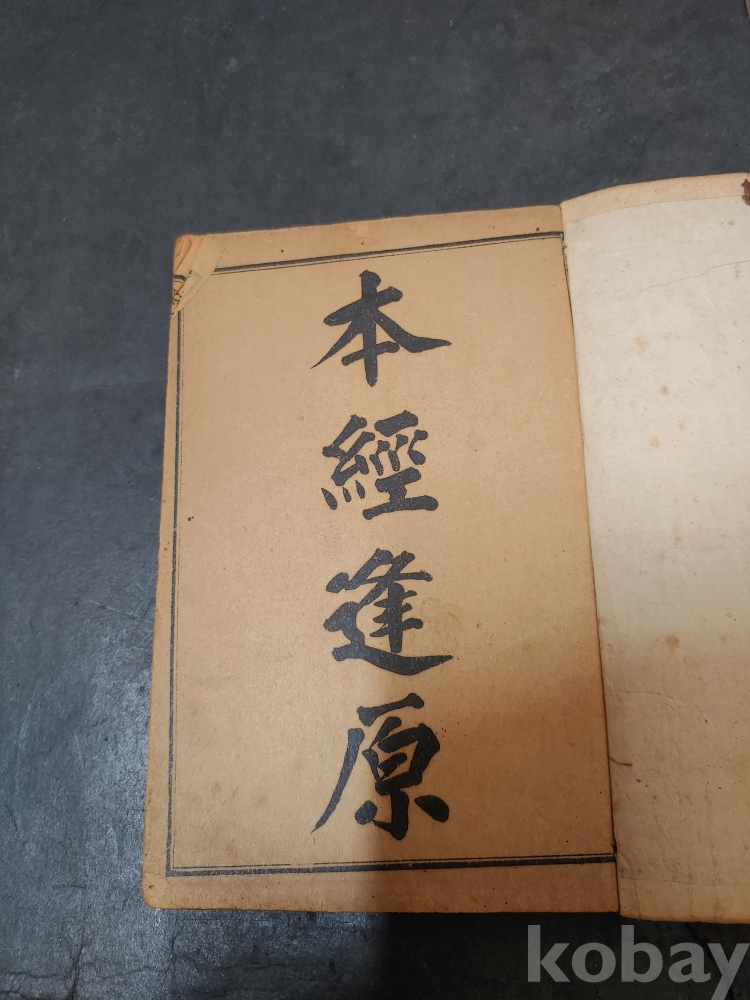 本經逢原
kobay